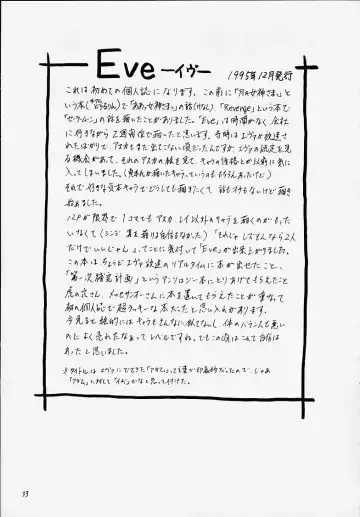 Eve ーイヴー 1995年12月発行
これは初めての個人誌になります。この前に「月の女神さま」と
いう本で「ああっ女神さま」の話「Revenge」という本で
「セーラームーン」の話を描いたことがありました。「Eve」は時間がなく会社
に行きながら2週間程で描いたと思います。当時はエヴァが放送さ
れたばかりで、アスカもまだ出てこない頃だったんですが、エヴァの設定を見
る機会があって、それのアスカの絵を見て、キャラの性格とか以前に気に
入ってしまいました。(貞本さんが描いたキャラっていうのももちろんあったけど)
それで好きな貞本キャラでどうしても描きたくて話もオチもないけど描き
始めました。
12Pが限界で1コマでもアスカ、レイ以外のキャラを描くのがもった
いなくて(シンジ、を描く自信もなかった)「それじゃレズもんなら2人
だけでいいじゃん」ってことに気付いて「Eve」が出来上がりました。
この本はちょうどエヴァ放送のリアルタイムに本が出せたこと、
「第一次補完計画」というアンソロジー本にとりあげてもらえたこと
虎の穴さん、メッセサンオーさんに本を置いてもらえたことが重なって
初の個人誌で超ラッキーな本だったと思い入れがあります。
今見ると絵的にはキャラもそんなに似てないし、体のバランスも悪い
のによく売れたなぁってレベルですね。でもこの頃はこれで自信は
あったと思いました。
※タイトルはエヴァにでてきた「アダム」って言葉が印象的だったので、じゃあ
「アダム」に対して「イヴ」かなと思って付けた。
33